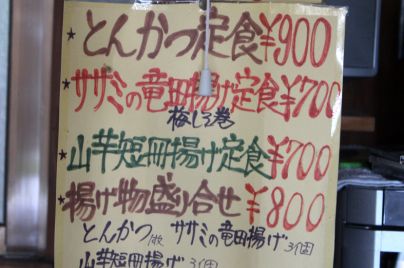 とんかつ定食¥900
*ササミの竜田揚げ定食¥700
梅しそ巻
*山芋短冊揚げ定食¥700
*揚げ物盛り合せ¥800
とんかつ1枚 ササミの竜田揚げ3個
山芋短冊揚げ3個